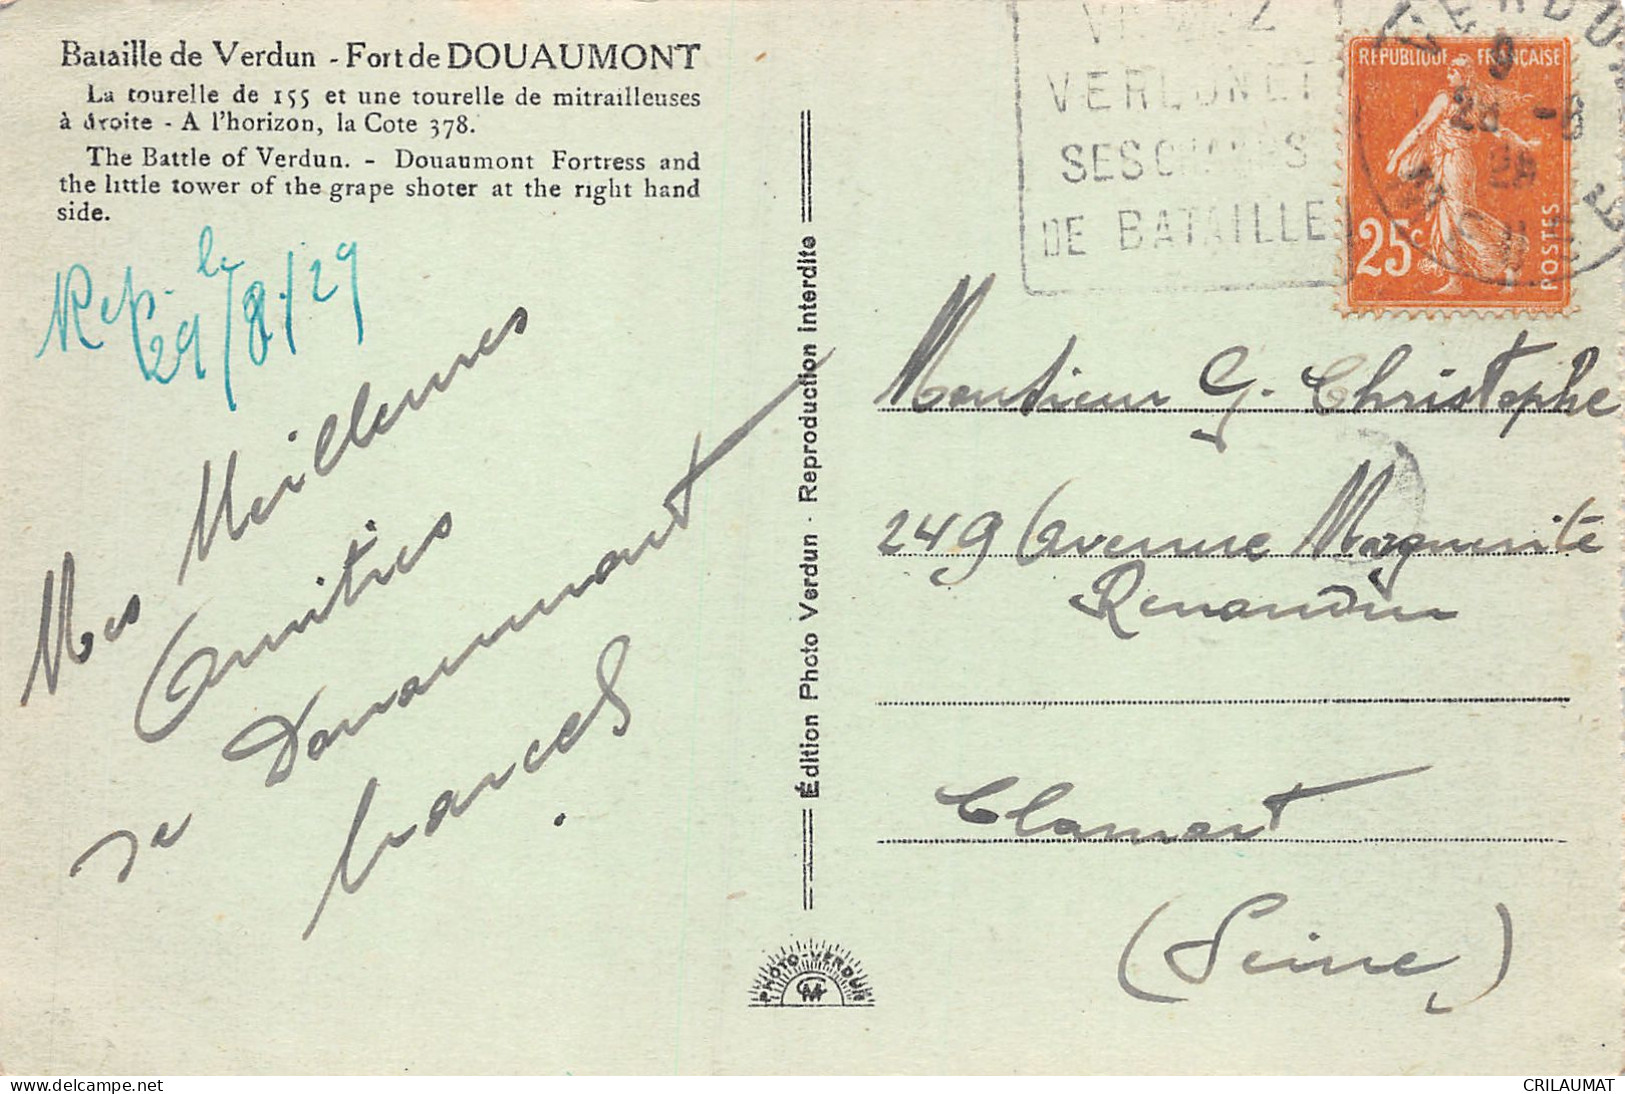 Bataille de Verdun - Fort de DOUAUMONT
La tourelle de 155 et une tourelle de mitrailleuses
à droite - A l'horizon, la Cote 378.
The Battle of Verdun. - Douaumont Fortress and
the little tower of the grape shoter at the right hand
side.
Rep. le
29/8/29
Mes Meilleures
Amitiés
de Douaumont
Marcel.
Édition Photo Verdun - Reproduction interdite
PHOTO-VERDUN
VERDUN ET
SES CHAMPS
DE BATAILLE
VERDUN
9
28 -8
MEUSE
REPUBLIQUE FRANÇAISE
25c
POSTES
Monsieur G. Christophe
249 Avenue Marguerite
Renaudin
Clamart
(Seine)
CRILAUMAT